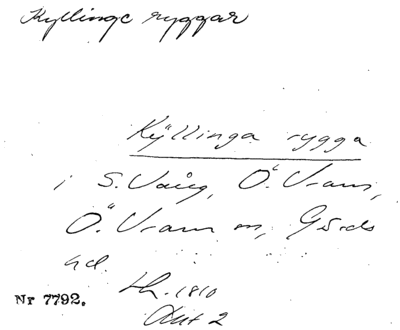 Kyllinge ryggar
Kyllinga rygga
i S. Vång, Ö. Vram,
Ö. Vram sn, Gärds
hd.
Nr 7792.
Lh. 1810
Akt 2